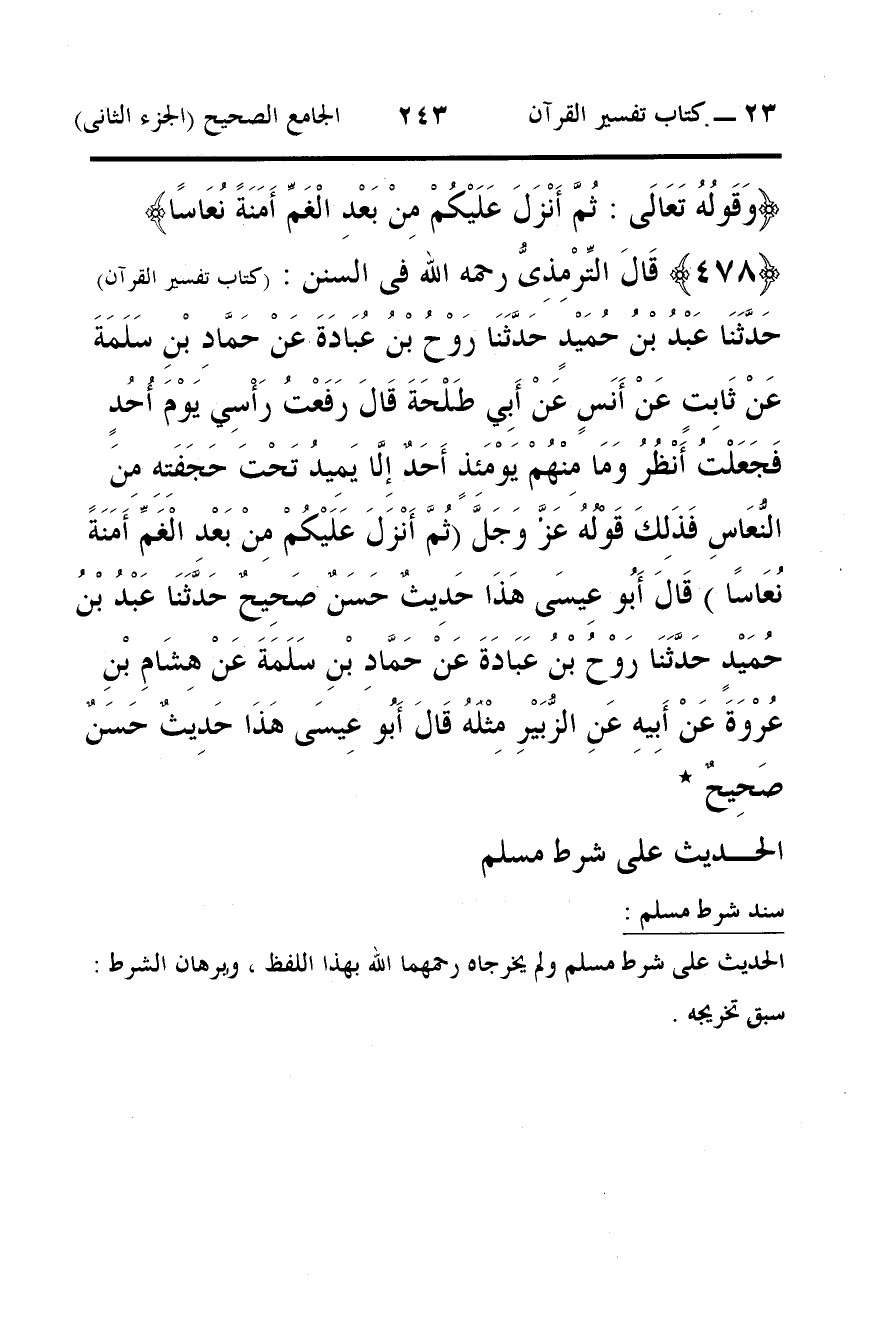 ٢٣ ـ كتاب تفسير القرآن ٢٤٣ الجامع الصحيح (الجزء الثانى)
﴿وَقَولُهُ تَعَالَى : ثُمَّ أَنْزَلَ عَلَيْكُمْ مِنْ بَعْدِ الْغَمِّ أَمَنَةً نُعَاسًا﴾
﴿٤٧٨﴾ قَالَ التِّرْمِذِىُّ رحمه الله فى السنن : (كتاب تفسير القرآن)
حَدَّثَنَا عَبْدُ بْنُ حُمَيْدٍ حَدَّثَنَا رَوْحُ بْنُ عُبَادَةَ عَنْ حَمَّادِ بْنِ سَلَمَةَ
عَنْ ثَابِتٍ عَنْ أَنَسٍ عَنْ أَبِي طَلْحَةَ قَالَ رَفَعْتُ رَأْسِي يَوْمَ أُحُدٍ
فَجَعَلْتُ أَنْظُرُ وَمَا مِنْهُمْ يَوْمَئِذٍ أَحَدٌ إِلَّا يَمِيدُ تَحْتَ حَجَفَتِهِ مِنَ
النُّعَاسِ فَذَلِكَ قَوْلُهُ عَزَّ وَجَلَّ (ثُمَّ أَنْزَلَ عَلَيْكُمْ مِنْ بَعْدِ الْغَمِّ أَمَنَةً
نُعَاسًا ) قَالَ أَبُو عِيسَى هَذَا حَدِيثٌ حَسَنٌ صَحِيحٌ حَدَّثَنَا عَبْدُ بْنُ
حُمَيْدٍ حَدَّثَنَا رَوْحُ بْنُ عُبَادَةَ عَنْ حَمَّادِ بْنِ سَلَمَةَ عَنْ هِشَامِ بْنِ
عُرْوَةَ عَنْ أَبِيهِ عَنِ الزُّبَيْرِ مِثْلَهُ قَالَ أَبُو عِيسَى هَذَا حَدِيثٌ حَسَنٌ
صَحِيحٌ *
الحـــديث على شرط مسلم
سند شرط مسلم :
الحديث على شرط مسلم ولم يخرجاه رحمهما الله بهذا اللفظ ، وبرهان الشرط :
سبق تخريجه .